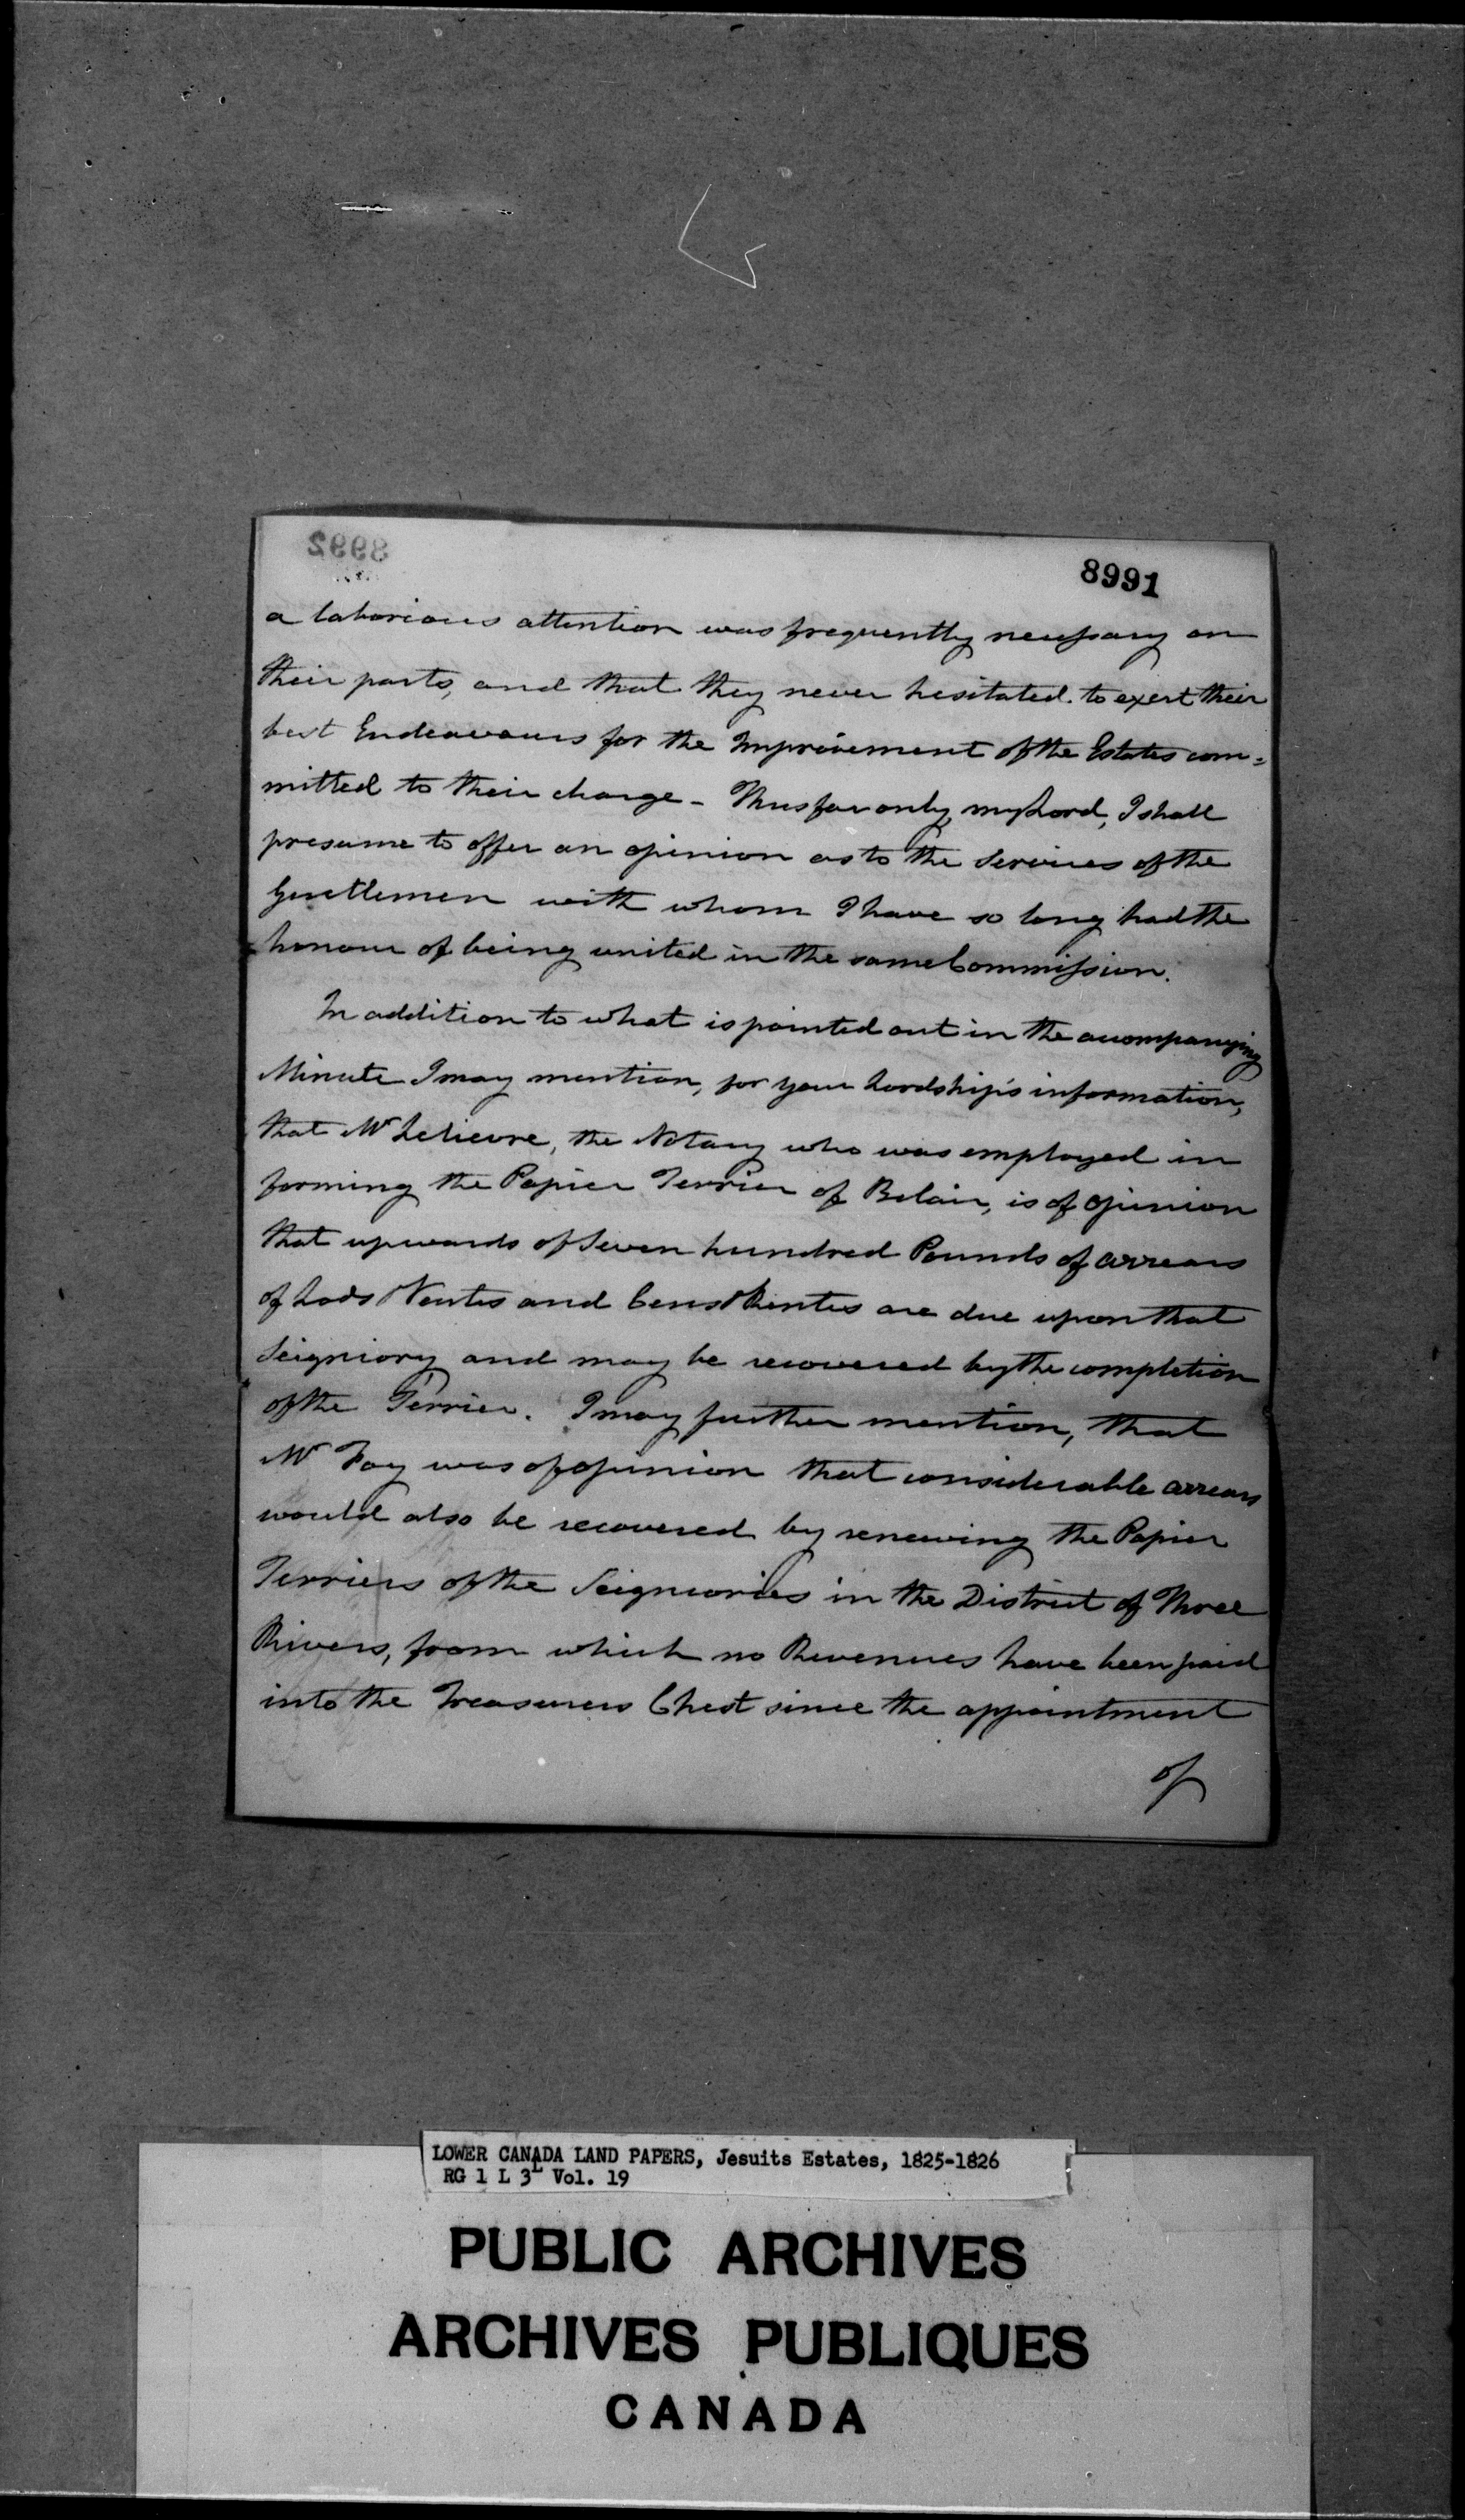 8992
8991
a laborious attention was frequently necessary on
their parts, and that they never hesitated to exert their
best Endeavours for the Improvement of the Estates com=
mitted to their charge - Thus far only, my Lord, I shall
presume to offer an opinion as to the Services of the
Gentlemen with whom I have so long had the
honour of being united in the same Commission.
In addition to what is pointed out in the accompanying
Minute I may mention, for your Lordship's information,
that Mr Lelievre, the Notary who was employed in
forming the Papier Terrier of Belair, is of opinion
that upwards of Seven hundred Pounds of arrears
of Lods & Ventes and Cens & Rentes are due upon that
Seigniory and may be recovered by the completion
of the Terrier. I may further mention, that
Mr Foy was of opinion that considerable arrears
would also be recovered by renewing the Papier
Terriers of the Seigniories in the District of Three
Rivers, from which no Revenues have been paid
into the Treasurers Chest since the appointment
of
LOWER CANADA LAND PAPERS, Jesuits Estates, 1825-1826
RG 1 L 3L Vol. 19
PUBLIC ARCHIVES
ARCHIVES PUBLIQUES
CANADA